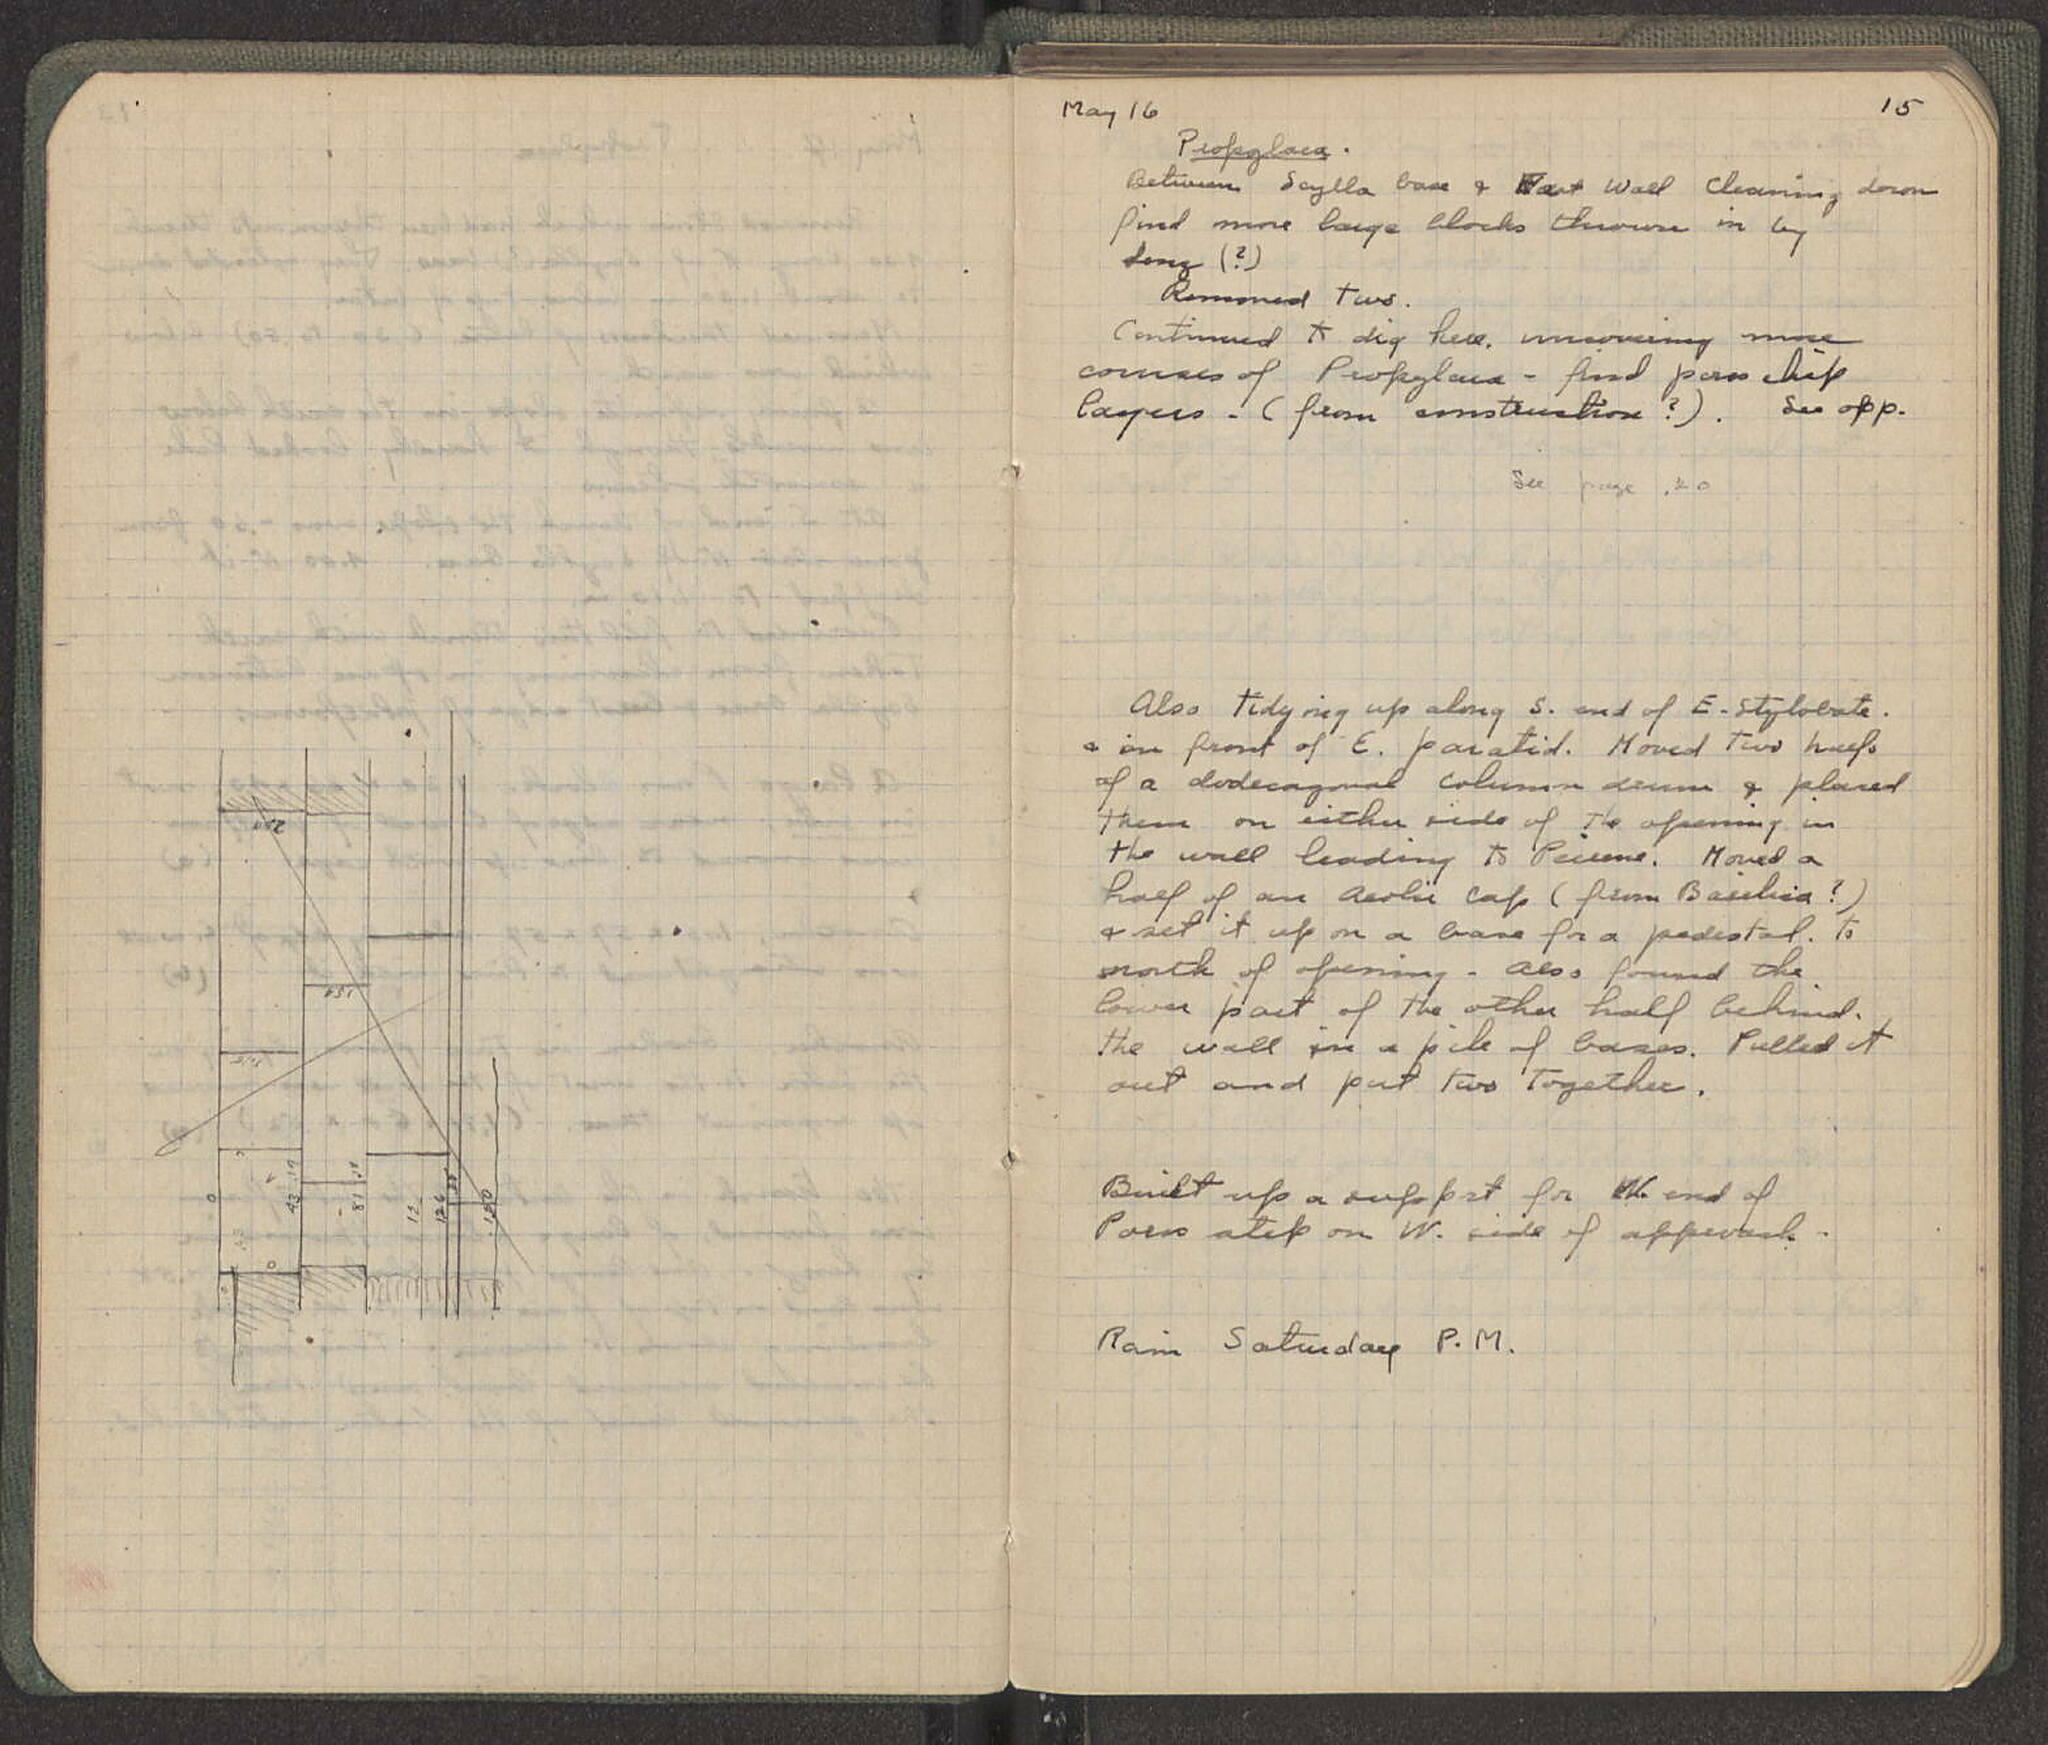 0
43
.19
81
.18
12
126
150
2.00
1.54
May 16
15
Propylaea.
Between Scylla base & East Wall Cleaning down
find more large blocks thrown in by
long (?)
Removed two.
Continued to dig here, uncovering more
courses of Propylaea - find poros chip
layers - (from construction?). See opp.
See page 20
Also tidying up along S. end of E-stylobate.
& in front of E. paratid. Moved two halfs
of a dodecagonal column drum & placed
them on either side of the opening in
the wall leading to Peirene. Moved a
half of an Aeolic cap (from Basilica?)
& set it up on a base for a pedestal. to
north of opening - Also found the
lower part of the other half behind.
the wall in a pile of bases. Pulled it
out and put two together.
Built up a support for N. end of
Poros step on W. side of approach -
Rain Saturday P.M.